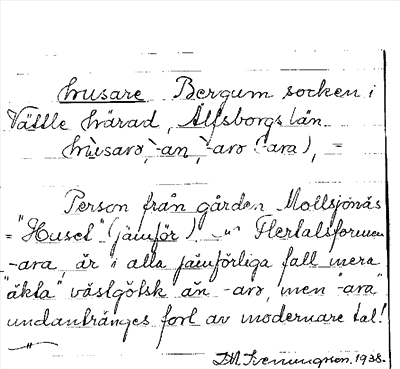 husare Bergum socken i
Vättle härad, Älfsborgs län.
hùsarə, -an, -arə (-ara), =
Person från gården Mollsjönäs
= "Huset" (jämför) Flertalsformen
-ara, är i alla jämförliga fall mera
"äkta" västgötsk än -arə, men "ara"
undantränges fort av modernare tal!
1938.